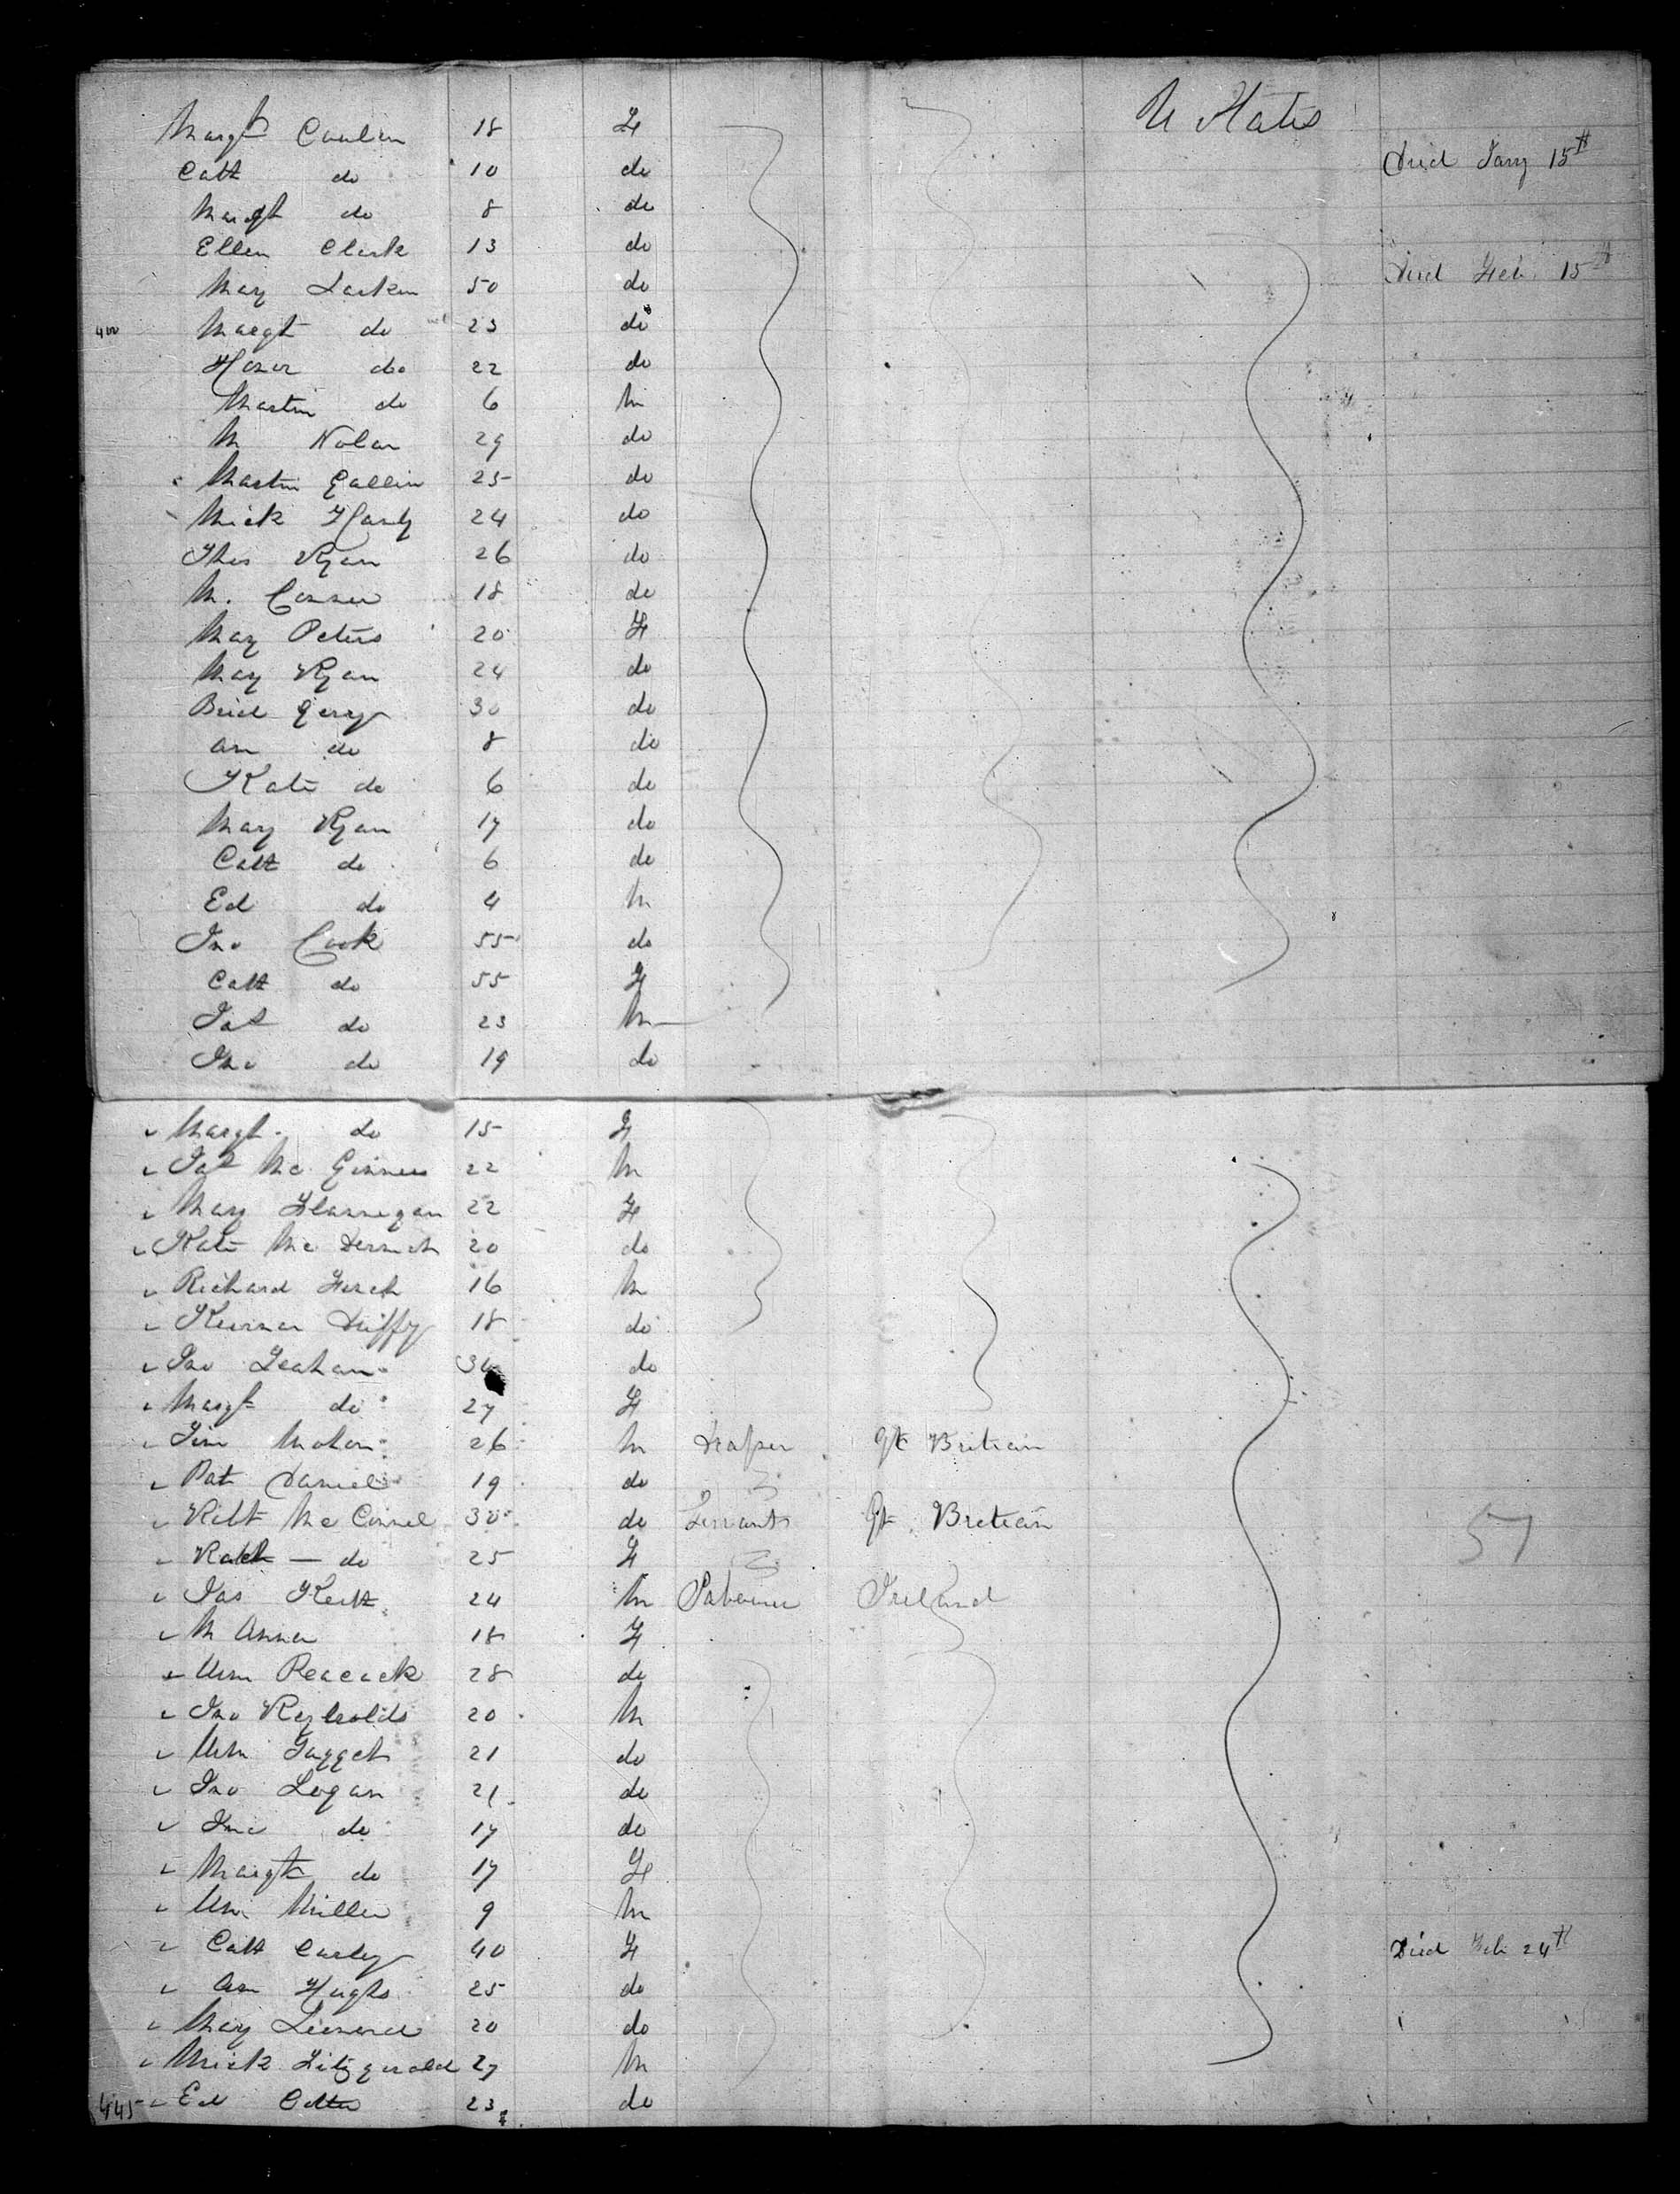 Margt 18 F U States
Cath do 10 do Died Jany 15th
Margt do 8 do
Ellen Clark 13 do
Mary Larkin 50 do Died Feb 15th
400 Margt do 23 do
Honor do 22 do
Martin do 6 M
M Nolan 29 do
Martin Gallin 25 do
Mick 24 do
Thos Ryan 26 do
M. Conner 18 do
Mary Peters 20 F
Mary Ryan 24 do
Brid 30 do
An do 8 do
Kate do 6 do
Mary Ryan 17 do
Cath do 6 do
Ed do 4 M
Jno Cook 55 do
Cath do 55 F
Pat do 23 M
Jno do 19 do
Margt do 15 F
Pat Mc Ginness 22 M
Mary Flannegan 22 F
Kate Mc 20 do
Richard 16 M
Duffy 18 do
Jno do
Margt do 27 F
Tim Mahon 26 M Draper Gt Britian
Pat Daniel 19 do
Robt Mc Connel 30 do Servants Gt Bretian
do 25 F 57
Jas 24 M Ireland
M Anna 18 F
Wm Peacock 28 do
Jno 20 M
Wm 21 do
Jno Logan 21 do
do 17 do
Margt do 17 F
Wm Miller 9 M
Cath 40 F Died Feb 24th
An Hughs 25 do
Mary Leonard 20 do
Mick Fitzgerald 27 M
445 Ed 23 do